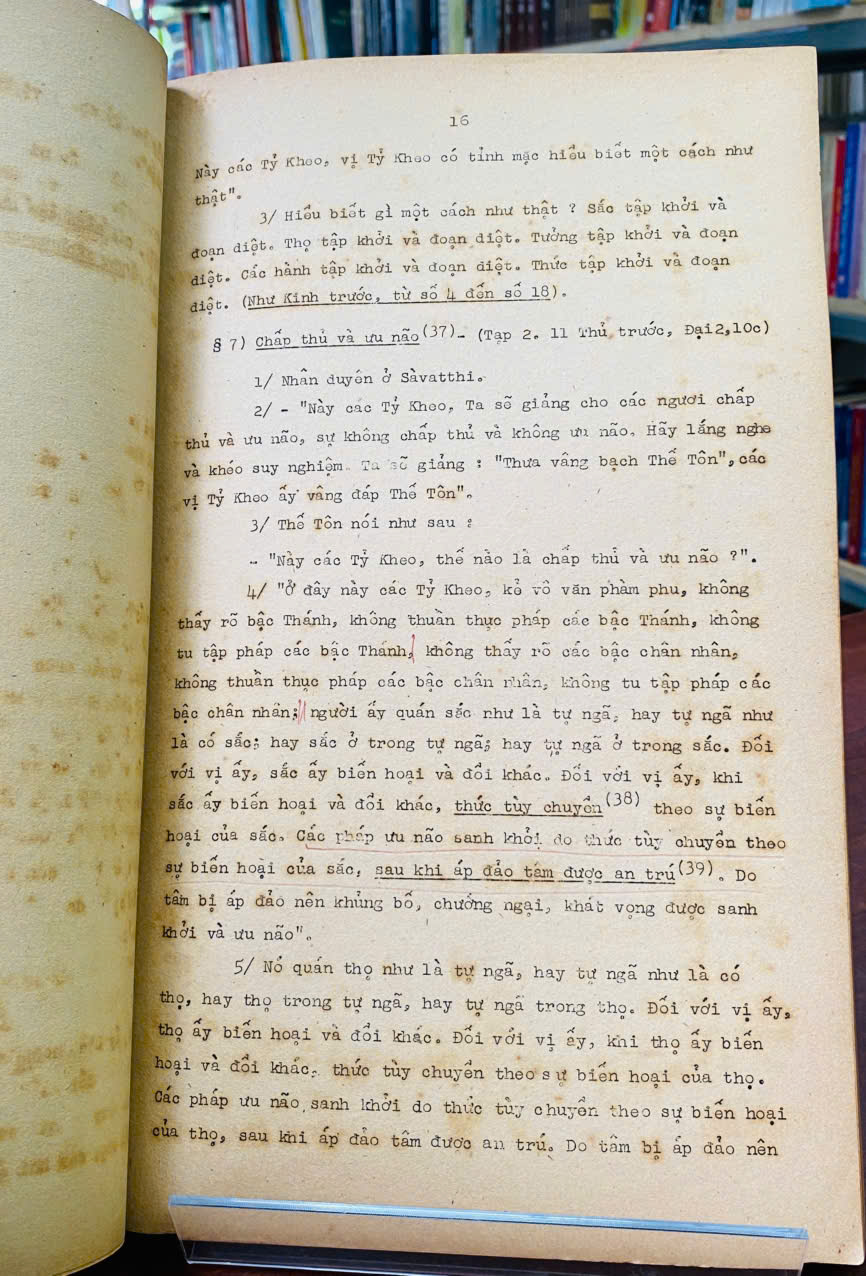 16
Này các Tỷ Kheo, vị Tỷ Kheo có tỉnh mặc hiểu biết một cách như
thật".
3/ Hiểu biết gì một cách như thật ? Sắc tập khởi và
đoạn diệt. Thọ tập khởi và đoạn diệt. Tưởng tập khởi và đoạn
diệt. Các hành tập khởi và đoạn diệt. Thức tập khởi và đoạn
diệt. (Như Kinh trước, từ số 4 đến số 18).
§ 7) Chấp thủ và ưu não(37)- (Tạp 2. 11 Thủ trước, Đại 2,10c)
1/ Nhân duyên ở Sàvatthi.
2/ - "Này các Tỷ Kheo, Ta sẽ giảng cho các ngươi chấp
thủ và ưu não, sự không chấp thủ và không ưu não. Hãy lắng nghe
và khéo suy nghiệm. Ta sẽ giảng : "Thưa vâng bạch Thế Tôn", các
vị Tỷ Kheo ấy vâng đáp Thế Tôn".
3/ Thế Tôn nói như sau :
- "Này các Tỷ Kheo, thế nào là chấp thủ và ưu não ?".
4/ "Ở đây này các Tỷ Kheo, kẻ vô văn phàm phu, không
thấy rõ bậc Thánh, không thuần thục pháp các bậc Thánh, không
tu tập pháp các bậc Thánh, không thấy rõ các bậc chân nhân,
không thuần thục pháp các bậc chân nhân, không tu tập pháp các
bậc chân nhân; người ấy quán sắc như là tự ngã, hay tự ngã như
là có sắc; hay sắc ở trong tự ngã; hay tự ngã ở trong sắc. Đối
với vị ấy, sắc ấy biến hoại và đổi khác. Đối với vị ấy, khi
sắc ấy biến hoại và đổi khác, thức tùy chuyển(38) theo sự biến
hoại của sắc. Các pháp ưu não sanh khởi do thức tùy chuyển theo
sự biến hoại của sắc, sau khi áp đảo tâm được an trú(39). Do
tâm bị áp đảo nên khủng bố, chướng ngại, khát vọng được sanh
khởi và ưu não".
5/ Nó quán thọ như là tự ngã, hay tự ngã như là có
thọ, hay thọ trong tự ngã, hay tự ngã trong thọ. Đối với vị ấy,
thọ ấy biến hoại và đổi khác. Đối với vị ấy, khi thọ ấy biến
hoại và đổi khác, thức tùy chuyển theo sự biến hoại của thọ.
Các pháp ưu não sanh khởi do thức tùy chuyển theo sự biến hoại
của thọ, sau khi áp đảo tâm được an trú. Do tâm bị áp đảo nên